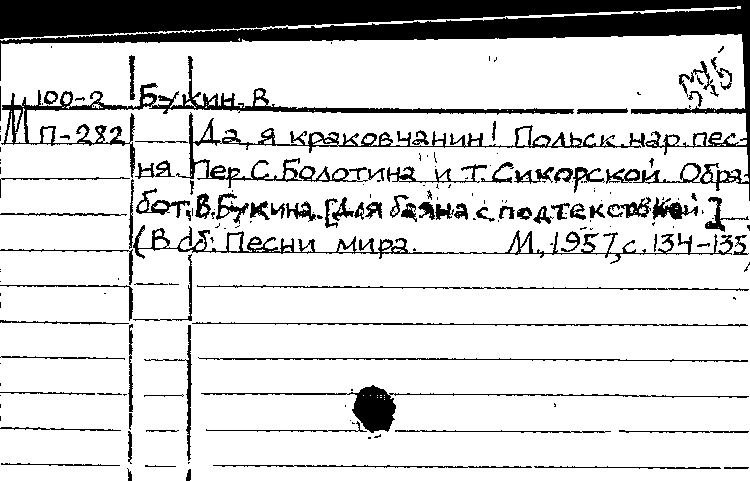 575
М 100-2 Букин, В.
П-282 Да, я краковчанин! Польск. нар. пес-
ня. Пер. С. Болотина и Т. Сикорской. Обра-
бот. В. Букина. [Для баяна с подтекстовкой.]
(В сб: Песни мира. М., 1957, с. 134-135)